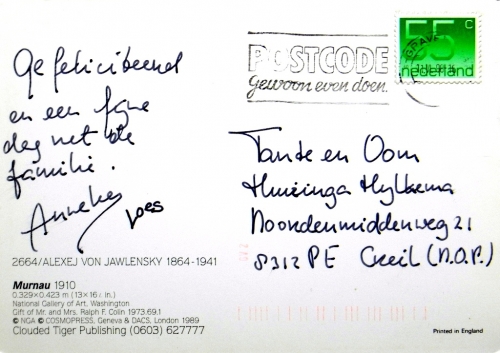 Gefeliciteerd
en een fijne
dag met de
familie.
Anneke
Loes
2664/ALEXEJ VON JAWLENSKY 1864-1941
Murnau 1910
0.329×0.423 m (13×16 in.)
National Gallery of Art, Washington
Gift of Mr. and Mrs. Ralph F. Colin 1973.69.1
© NGA © COSMOPRESS, Geneva & DACS, London 1989
Clouded Tiger Publishing (0603) 627777
POSTCODE
gewoon even doen.
55 c
nederland
Tante en Oom
Huizinga Hylkema
Noordermiddenweg 21
8312 PE Creil (N.O.P.)
Printed in England